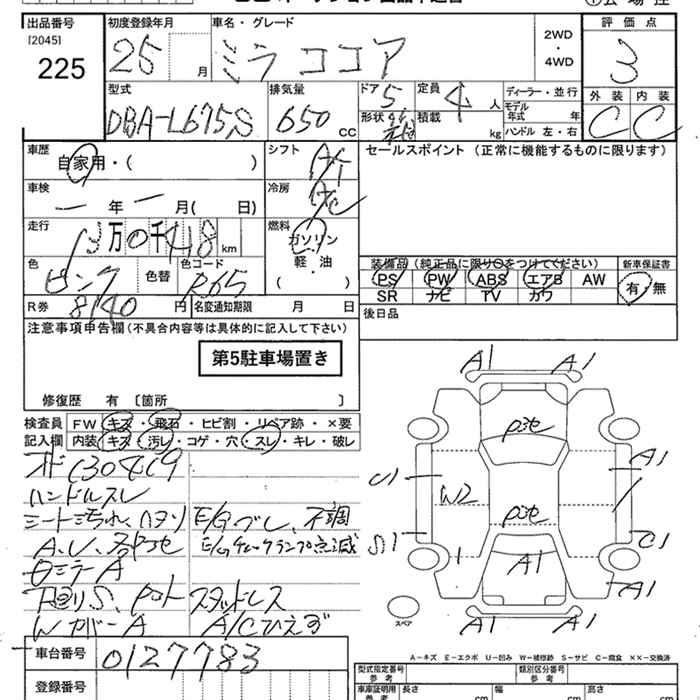 出品番号 初度登録年月 車名・グレード 評価点
[2045]
225 25 月 ミラココア 2WD・4WD 3
型式 排気量 ドア 5 定員 4 人 ディーラー・並行 外装 内装
DBA-L675S 650 CC 形状 積載 kg モデル年式 年 C C
ハンドル 左・右
車歴 自家用・( ) シフト AT セールスポイント (正常に機能するものに限ります)
車検 ー年ー月( 日) 冷房 AC
走行 13万0千418km 燃料 ガソリン 軽・油 ( )
色 ピンク 色替 色コード R65
装備品(純正品に限り○をつけてください) 新車保証書
PS PW ABS エアB AW 有・無
SR ナビ TV カワ
R券 8140 円 名変通知期限 月 日 後日品
注意事項申告欄(不具合内容等は具体的に記入して下さい)
第5駐車場置き
修復歴 有 〔箇所 〕
検査員記入欄 FW キズ・飛石・ヒビ割・リペア跡・×要
内装 キズ・汚レ・コゲ・穴・スレ・キレ・破レ
オド130419
ハンドルスレ
シート汚れ、ハタリ E/Gブレ、不調
A.U. E/Gチェックランプ点滅
ロミラーA
下廻りS、 スタッドレス
WカバーA A/Cひえず
A1 A1
凹
U1 W2 A1
S1 A1 C1
A1
A1 A1
スペア
A―キズ E―エクボ U―凹み W―補修跡 S―サビ C―腐食 ××―交換済
車台番号 0127783
型式指定番号 参考 類別区分番号 参考
登録番号 車庫証明用 参考 長さ cm 幅 cm 高さ cm